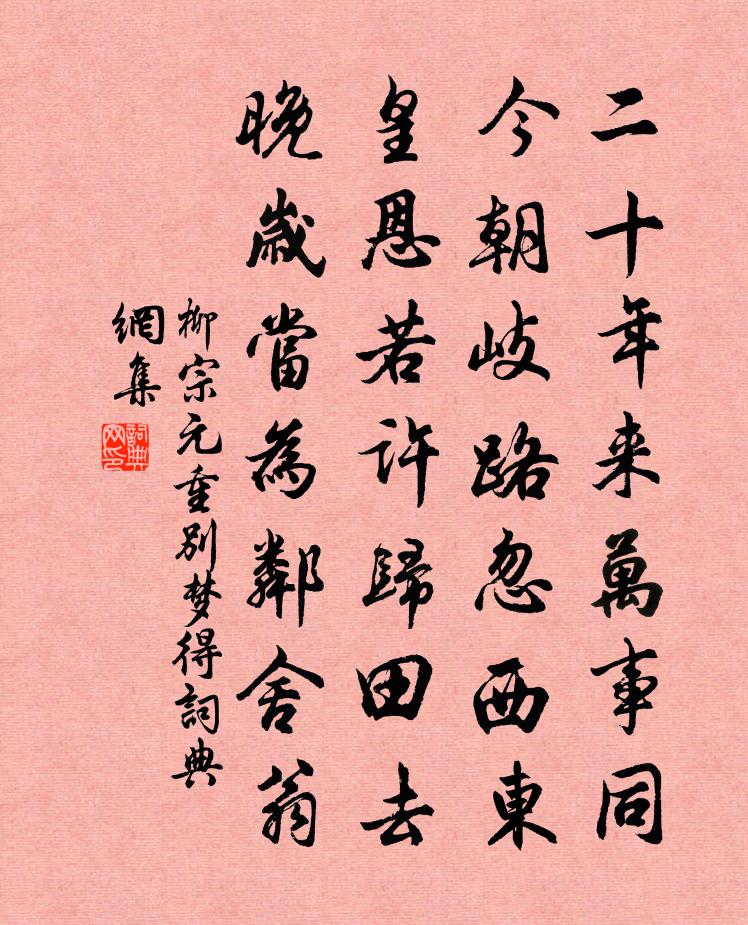 二十年来萬事同
今朝歧路忽西東
皇恩若許歸田去
晚歲當為鄰舍翁
柳宗元重别梦得詞典
網集
詞典
网印